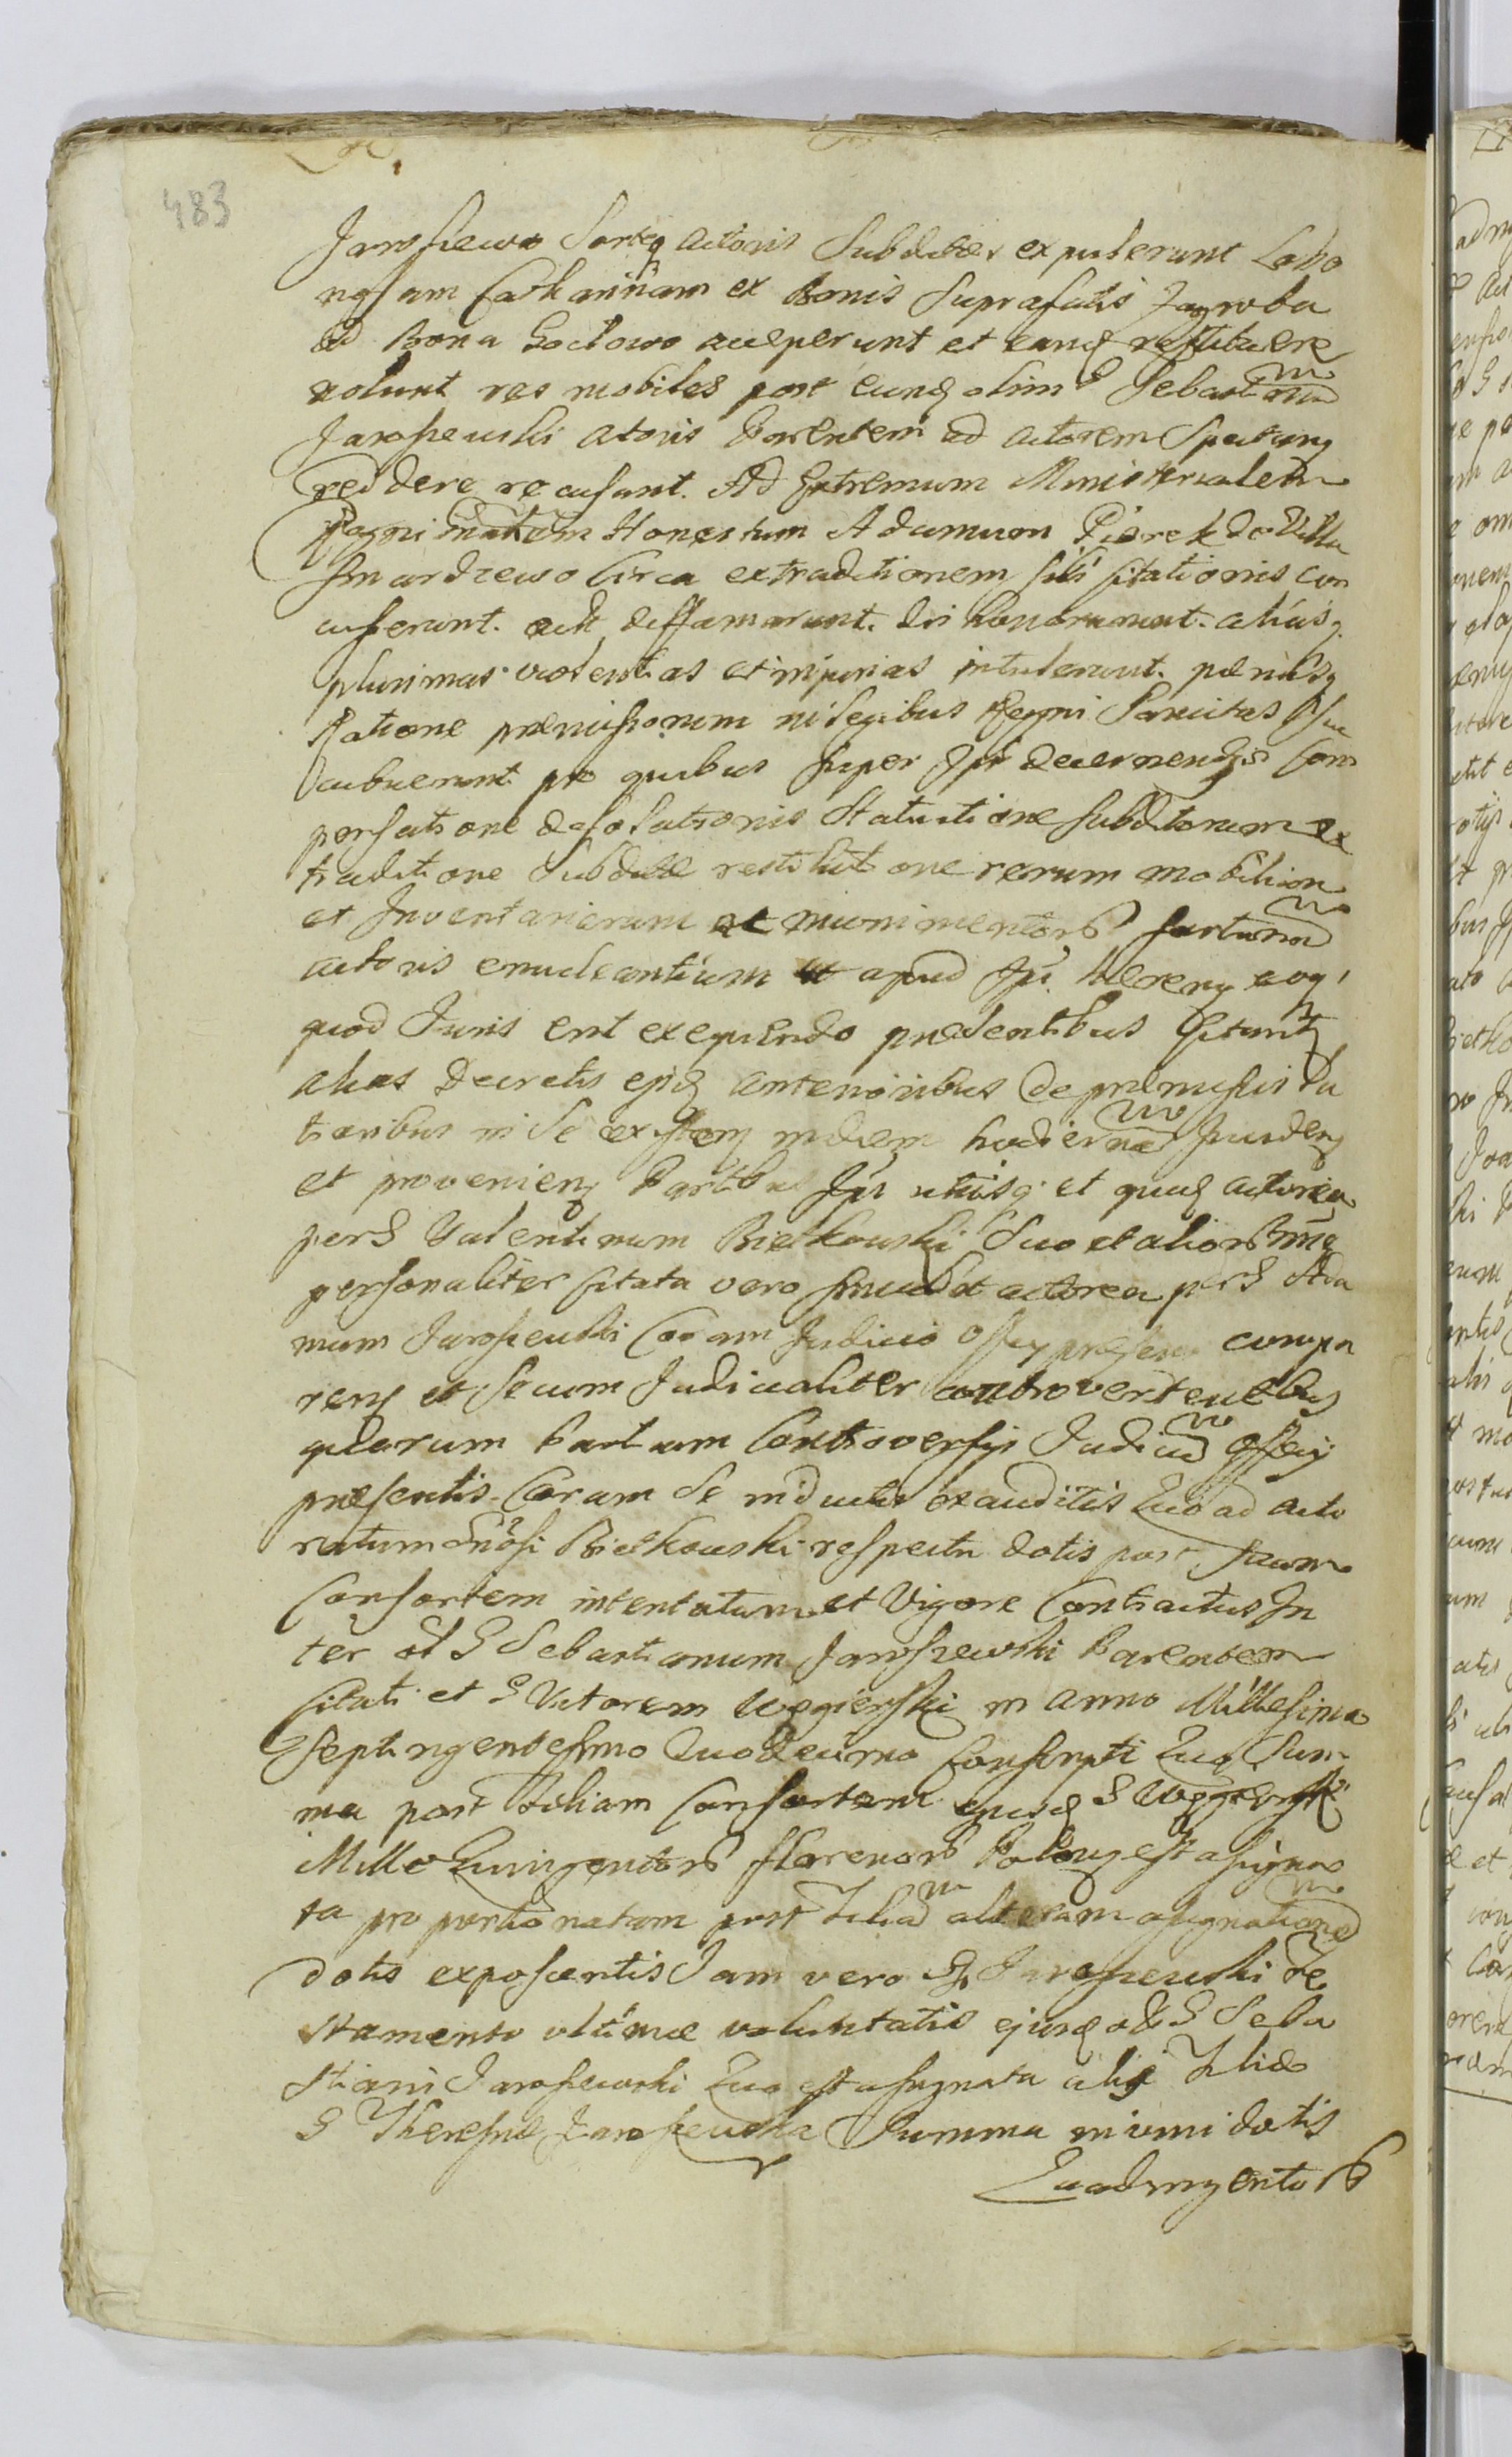 483
Jaroszewo Sorteq actoris Subditos expulerunt Labo
riosam Catharinam ex Bonis Suprafatis
ad Bona Goclowo acceperunt et eandq restituere
nolunt res mobiles post eundq olim G Sebastianum
Jaroszewski actoris Parentem ad actorem Spectanq
reddere recusant. Ad Extremum Ministerialem
Regni Honestum Adamum Piorek de Villa
Smardzewo Circa extraditionem sibi Citationis con
cusserunt. diffamarunt. dishonorarunt. aliasq
plurimas violentias et injurias intulerunt. pænisq
Ratione præmissorum in Legibus Regni Sancitas Su
cubuerunt pro quibus super Ipsis decernendis Com
pensatione desolationis Statuitione subditorum ex
traditione Subditæ restitutione rerum mobilium
et Inventariorum ac munimentorum fortunam
actoris enucleantium et apud Ips hæren
quod Juris erit exequendo præsentibus Citantq
alias Decretis ejusdq anterioribus de præmissis Du
toribus in se existenq in diem hodiernam
et provenienq Partibus Ipsis utrisq et quidq actorea
per G Valentinum Bielkowski Suo et aliorum nne
personaliter Citata vero simul et actorea per G Ada
mum Jaroszewski Coram Judicio Officij præsen compa
renq et secum Judicialiter controvertentibus
quarum Partium Controversijs Judicium Officij
præsentis Coram Se inductis exauditis Quo ad acto
ratum Gnosi Bielkowski respectu dotis post suam
Consortem intentatum et Vigore Contractus In
ter ol G Sebastianum Jaroszewski Parentem
Citati et G Victorem Węgierski in anno Millesimo
Septingentesimo Duodecimo Conscripti Quo Sum
ma post Filiam Consortem ejusdq G Węgierski
Mille Quingentorum florenorum Polonq est assigna
ta proportionatam post Filiam alteram assignationem
dotis exposcentis Jam vero G Jaroszewski Te
stamento ultimæ voluntatis ejusdq ol G Seba
stiani Jaroszewski Quo est assignata alij Filiæ
G Theresiæ Jaroszewska Summa in vim dotis
Quadringentorum